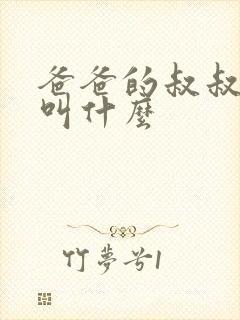 爸爸的叔叔
叫什麼
竹夢兮1